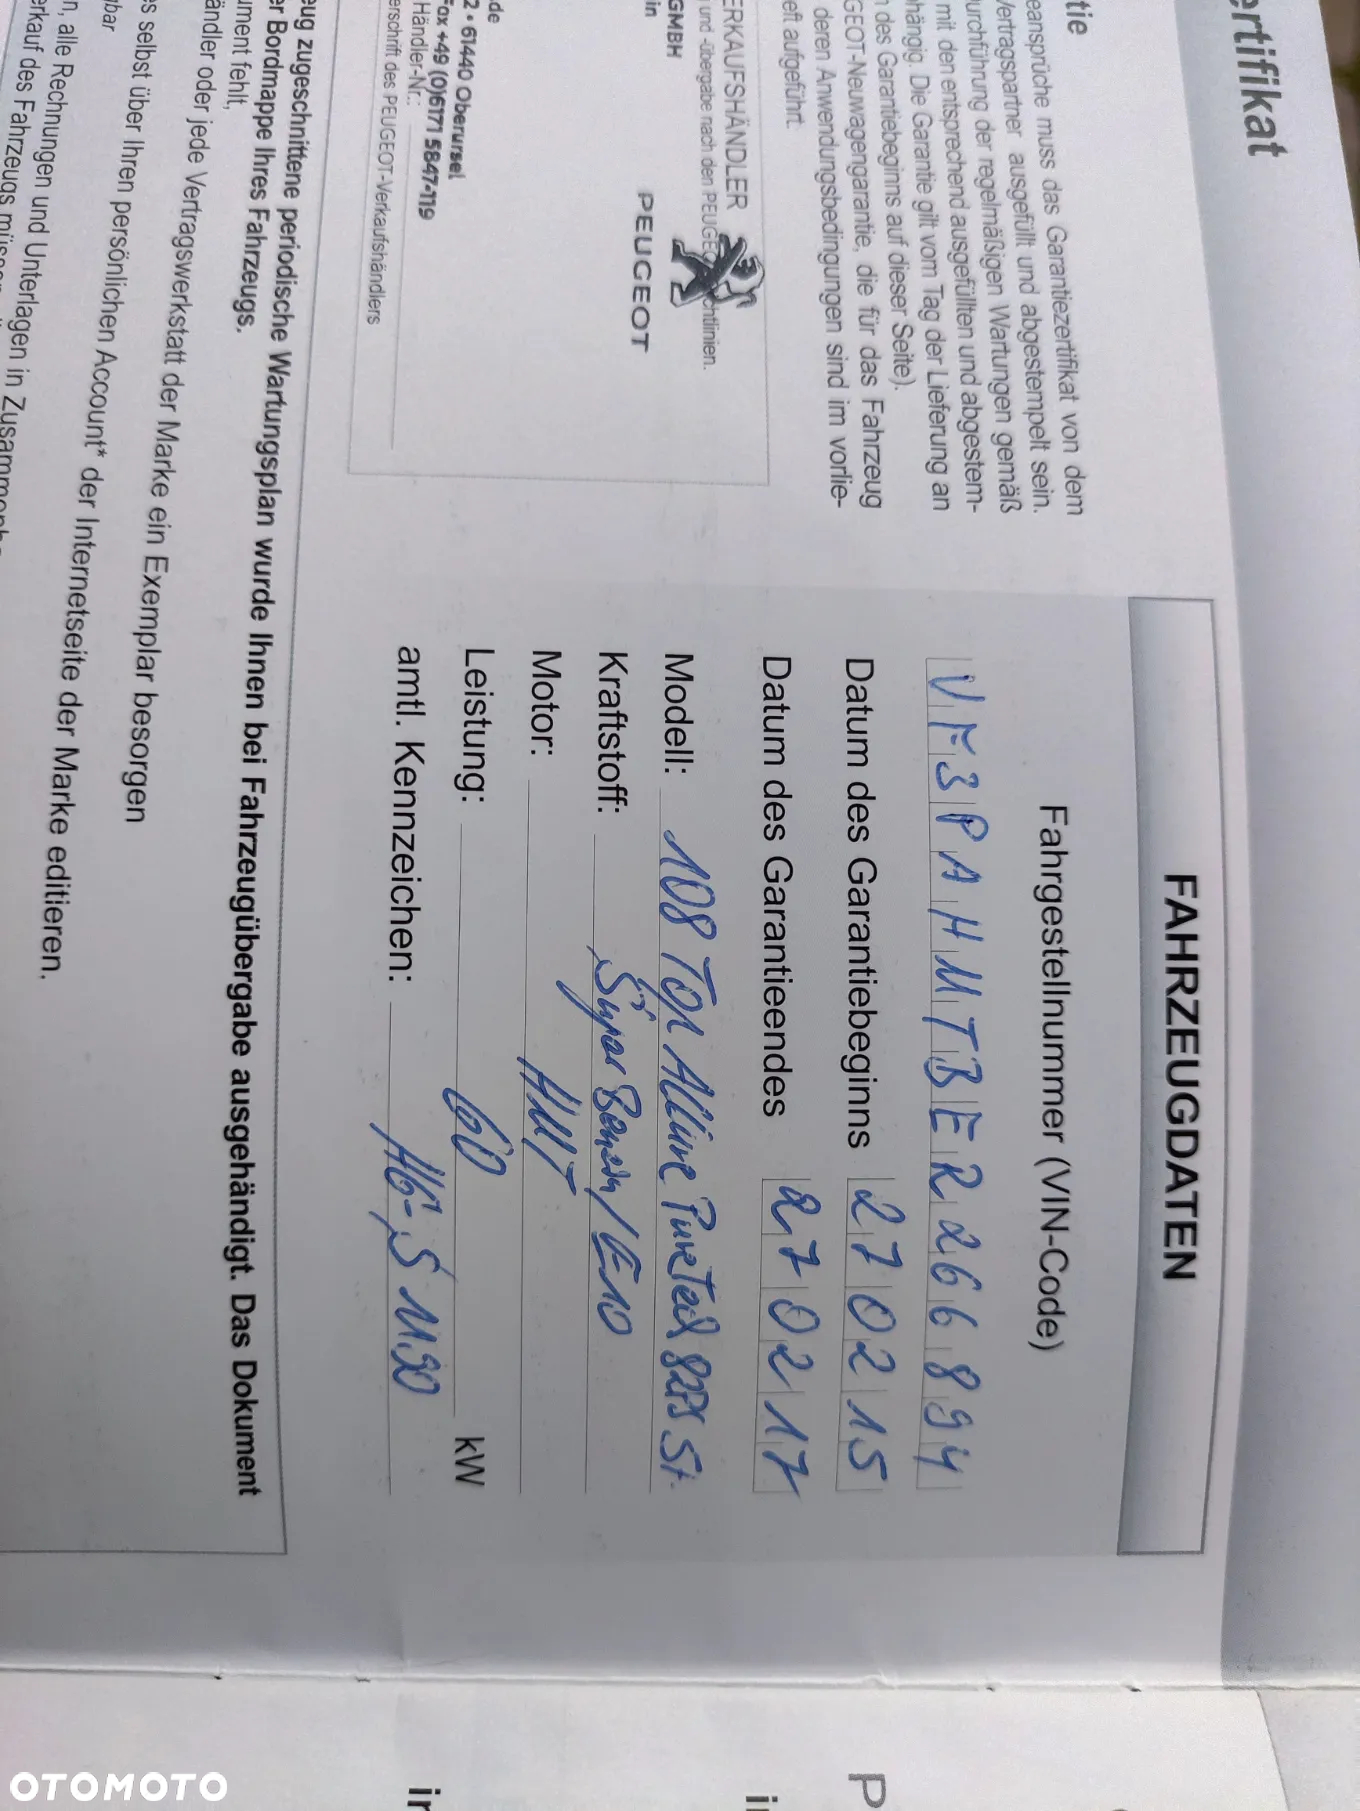 ertifikat
tie
eansprüche muss das Garantiezertifikat von dem
Vertragspartner ausgefüllt und abgestempelt sein.
urchführung der regelmäßigen Wartungen gemäß
mit den entsprechend ausgefüllten und abgestem-
hängig. Die Garantie gilt vom Tag der Lieferung an
des Garantiebeginns auf dieser Seite).
GEOT-Neuwagengarantie, die für das Fahrzeug
deren Anwendungsbedingungen sind im vorlie-
eft aufgeführt.
ERKAUFSHÄNDLER
und -übergabe nach den PEUGEO chtlinien.
GMBH
in
PEUGEOT
.de
2 • 61440 Oberursel
Fax +49 (0)6171 5847-119
Händler-Nr.:
erschrift des PEUGEOT-Verkaufshändlers
FAHRZEUGDATEN
Fahrgestellnummer (VIN-Code)
VF3PAHMTBER266894
Datum des Garantiebeginns 270215
Datum des Garantieendes 270217
Modell: 108 Top Allure PureTech 82PS St.
Kraftstoff: Super Benzin / E10
Motor: HMT
Leistung: 60 kW
amtl. Kennzeichen: HG-S 1190
eug zugeschnittene periodische Wartungsplan wurde Ihnen bei Fahrzeugübergabe ausgehändigt. Das Dokument
er Bordmappe Ihres Fahrzeugs.
ument fehlt,
ändler oder jede Vertragswerkstatt der Marke ein Exemplar besorgen
es selbst über Ihren persönlichen Account* der Internetseite der Marke editieren.
gbar
n, alle Rechnungen und Unterlagen in
erkauf des Fahrzeugs
OTOMOTO